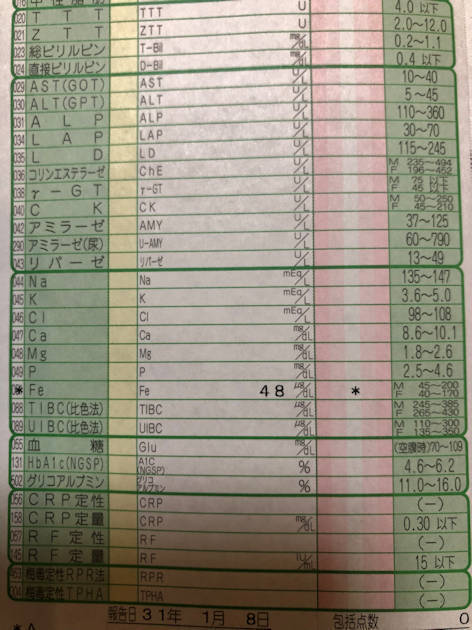 020 TTT TTT U 4.0 以下
021 ZTT ZTT U 2.0~12.0
023 総ビリルビン T-Bil mg/dL 0.2~1.1
024 直接ビリルビン D-Bil mg/dL 0.4 以下
029 AST(GOT) AST U/L 10~40
030 ALT(GPT) ALT U/L 5~45
031 ALP ALP U/L 110~360
034 LAP LAP U/L 30~70
035 LD LD U/L 115~245
036 コリンエステラーゼ ChE U/L M 235~494 F 196~452
038 γ-GT γ-GT U/L M 75 以下 F 45 以下
040 CK CK U/L M 50~250 F 45~210
042 アミラーゼ AMY U/L 37~125
290 アミラーゼ(尿) U-AMY U/L 60~790
043 リパーゼ リパーゼ U/L 13~49
044 Na Na mEq/L 135~147
045 K K 3.6~5.0
046 Cl Cl mEq/L 98~108
047 Ca Ca mg/dL 8.6~10.1
048 Mg Mg mg/dL 1.8~2.6
049 P P mg/dL 2.5~4.6
* Fe Fe 48 μg/dL * M 45~200 F 40~170
088 TIBC(比色法) TIBC μg/dL M 245~385 F 265~430
089 UIBC(比色法) UIBC μg/dL M 110~300 F 135~350
055 血糖 Glu mg/dL (空腹時)70~109
131 HbA1c(NGSP) A1C (NGSP) % 4.6~6.2
502 グリコアルブミン グリコアルブミン % 11.0~16.0
056 CRP定性 CRP (-)
158 CRP定量 CRP mg/dL 0.30 以下
057 RF定性 RF (-)
145 RF定量 RF IU/mL 15 以下
453 梅毒定性RPR法 RPR (-)
304 梅毒定性TPHA TPHA (-)
報告日 31年 1月 8日 包括点数 0